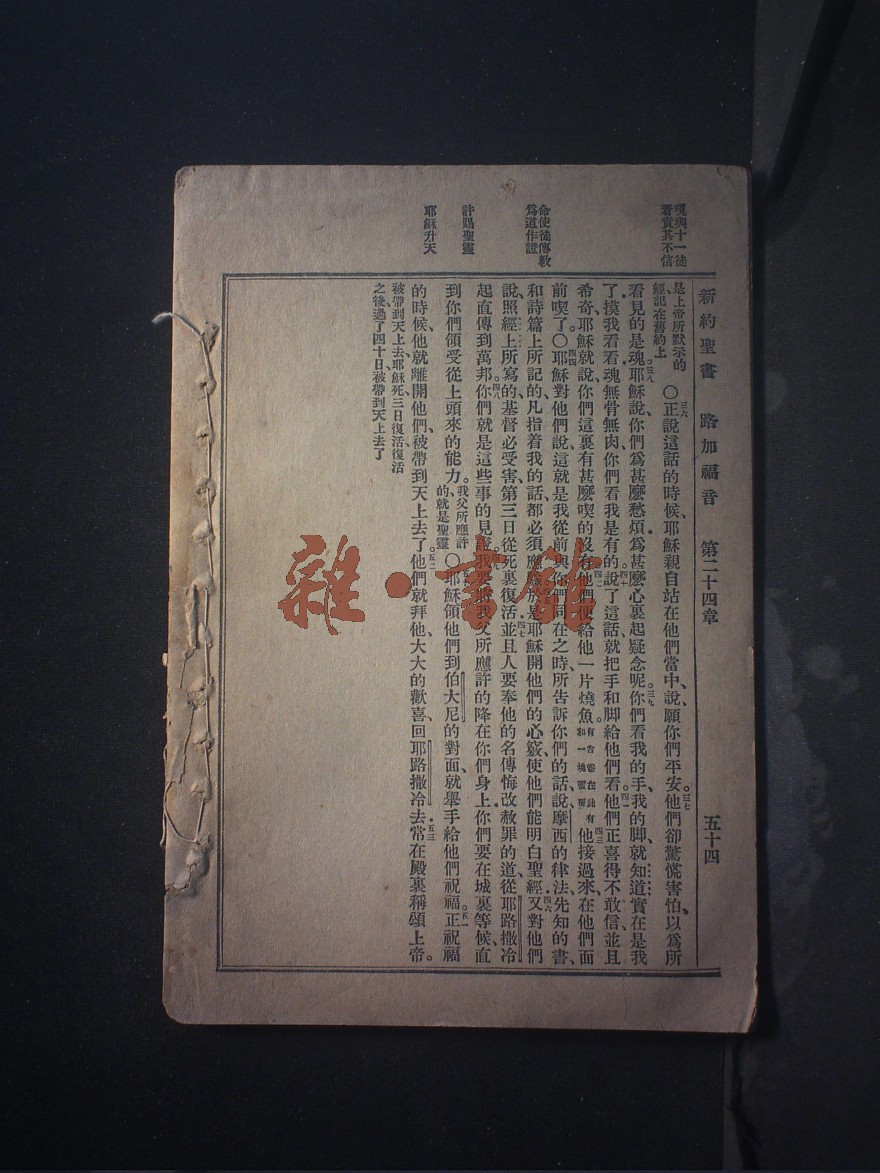 新約聖書 路加福音 第二十四章 五十四
現與十一徒
看責其不信
命使徒傳教
爲道作證
許賜聖靈
耶穌升天
是上帝所默示的
經記在舊約上
〇三六正說這話的時候、耶穌親自站在他們當中、說、願你們平安。三七他們卻驚慌害怕、以爲所
看見的是魂。三八耶穌說、你們爲甚麼愁煩、爲甚麼心裏起疑念呢。三九你們看我的手、我的脚、就知道實在是我
了、摸我看看、魂無骨無肉、你們看我是有的。四十說了這話、就把手和脚給他們看。四一他們正喜得不敢信、並且
希奇、耶穌就說、你們這裏有甚麼喫的沒有。四二他們便給他一片燒魚。
四三他接過來、在他們面
前喫了。〇四四耶穌對他們說、這就是我從前與你們同在之時、所告訴你們的話、說、摩西的律法、先知的書、
和詩篇上所記的、凡指着我的話、都必須應驗。四五於是耶穌開他們的心竅、使他們能明白聖經。四六又對他們
說、照經上所寫的、基督必受害、第三日從死裏復活。四七並且人要奉他的名傳悔改赦罪的道、從耶路撒冷
起直傳到萬邦。四八你們就是這些事的見證。四九我要將我父所應許的降在你們身上、你們要在城裏等候、直
到你們領受從上頭來的能力。
我父所應許
的就是聖靈
〇五十耶穌領他們到伯大尼的對面、就舉手給他們祝福。五一正祝福
的時候、他就離開他們、被帶到天上去了。五二他們就拜他、大大的歡喜、回耶路撒冷去。五三常在殿裏稱頌上帝。
被帶到天上去、耶穌死三日復活、復活
之後過了四十日、被帶到天上去了
雜·書館